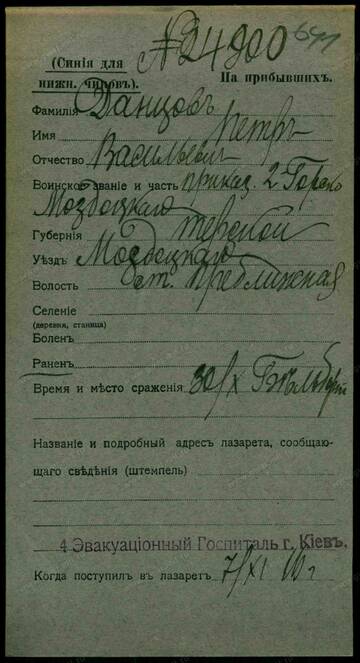 (Синія для
нижн. чиновъ).
№ 24900
641
На прибывшихъ.
Фамилія Данцовъ
Имя Петръ
Отчество Васильевъ
Воинское званіе и часть приказ. 2 Горско
Моздоцкаго
Губернія Терской
Уѣздъ Моздоцкаго
Волость ст. Приближная
Селеніе
(деревня, станица)
Боленъ
Раненъ
Время и мѣсто сраженія 30/X
Названіе и подробный адресъ лазарета, сообщаю-
щаго свѣдѣнія (штемпель)
4 Эвакуаціонный Госпиталь г. Кіевъ.
Когда поступилъ въ лазаретъ 7/XI 16 г